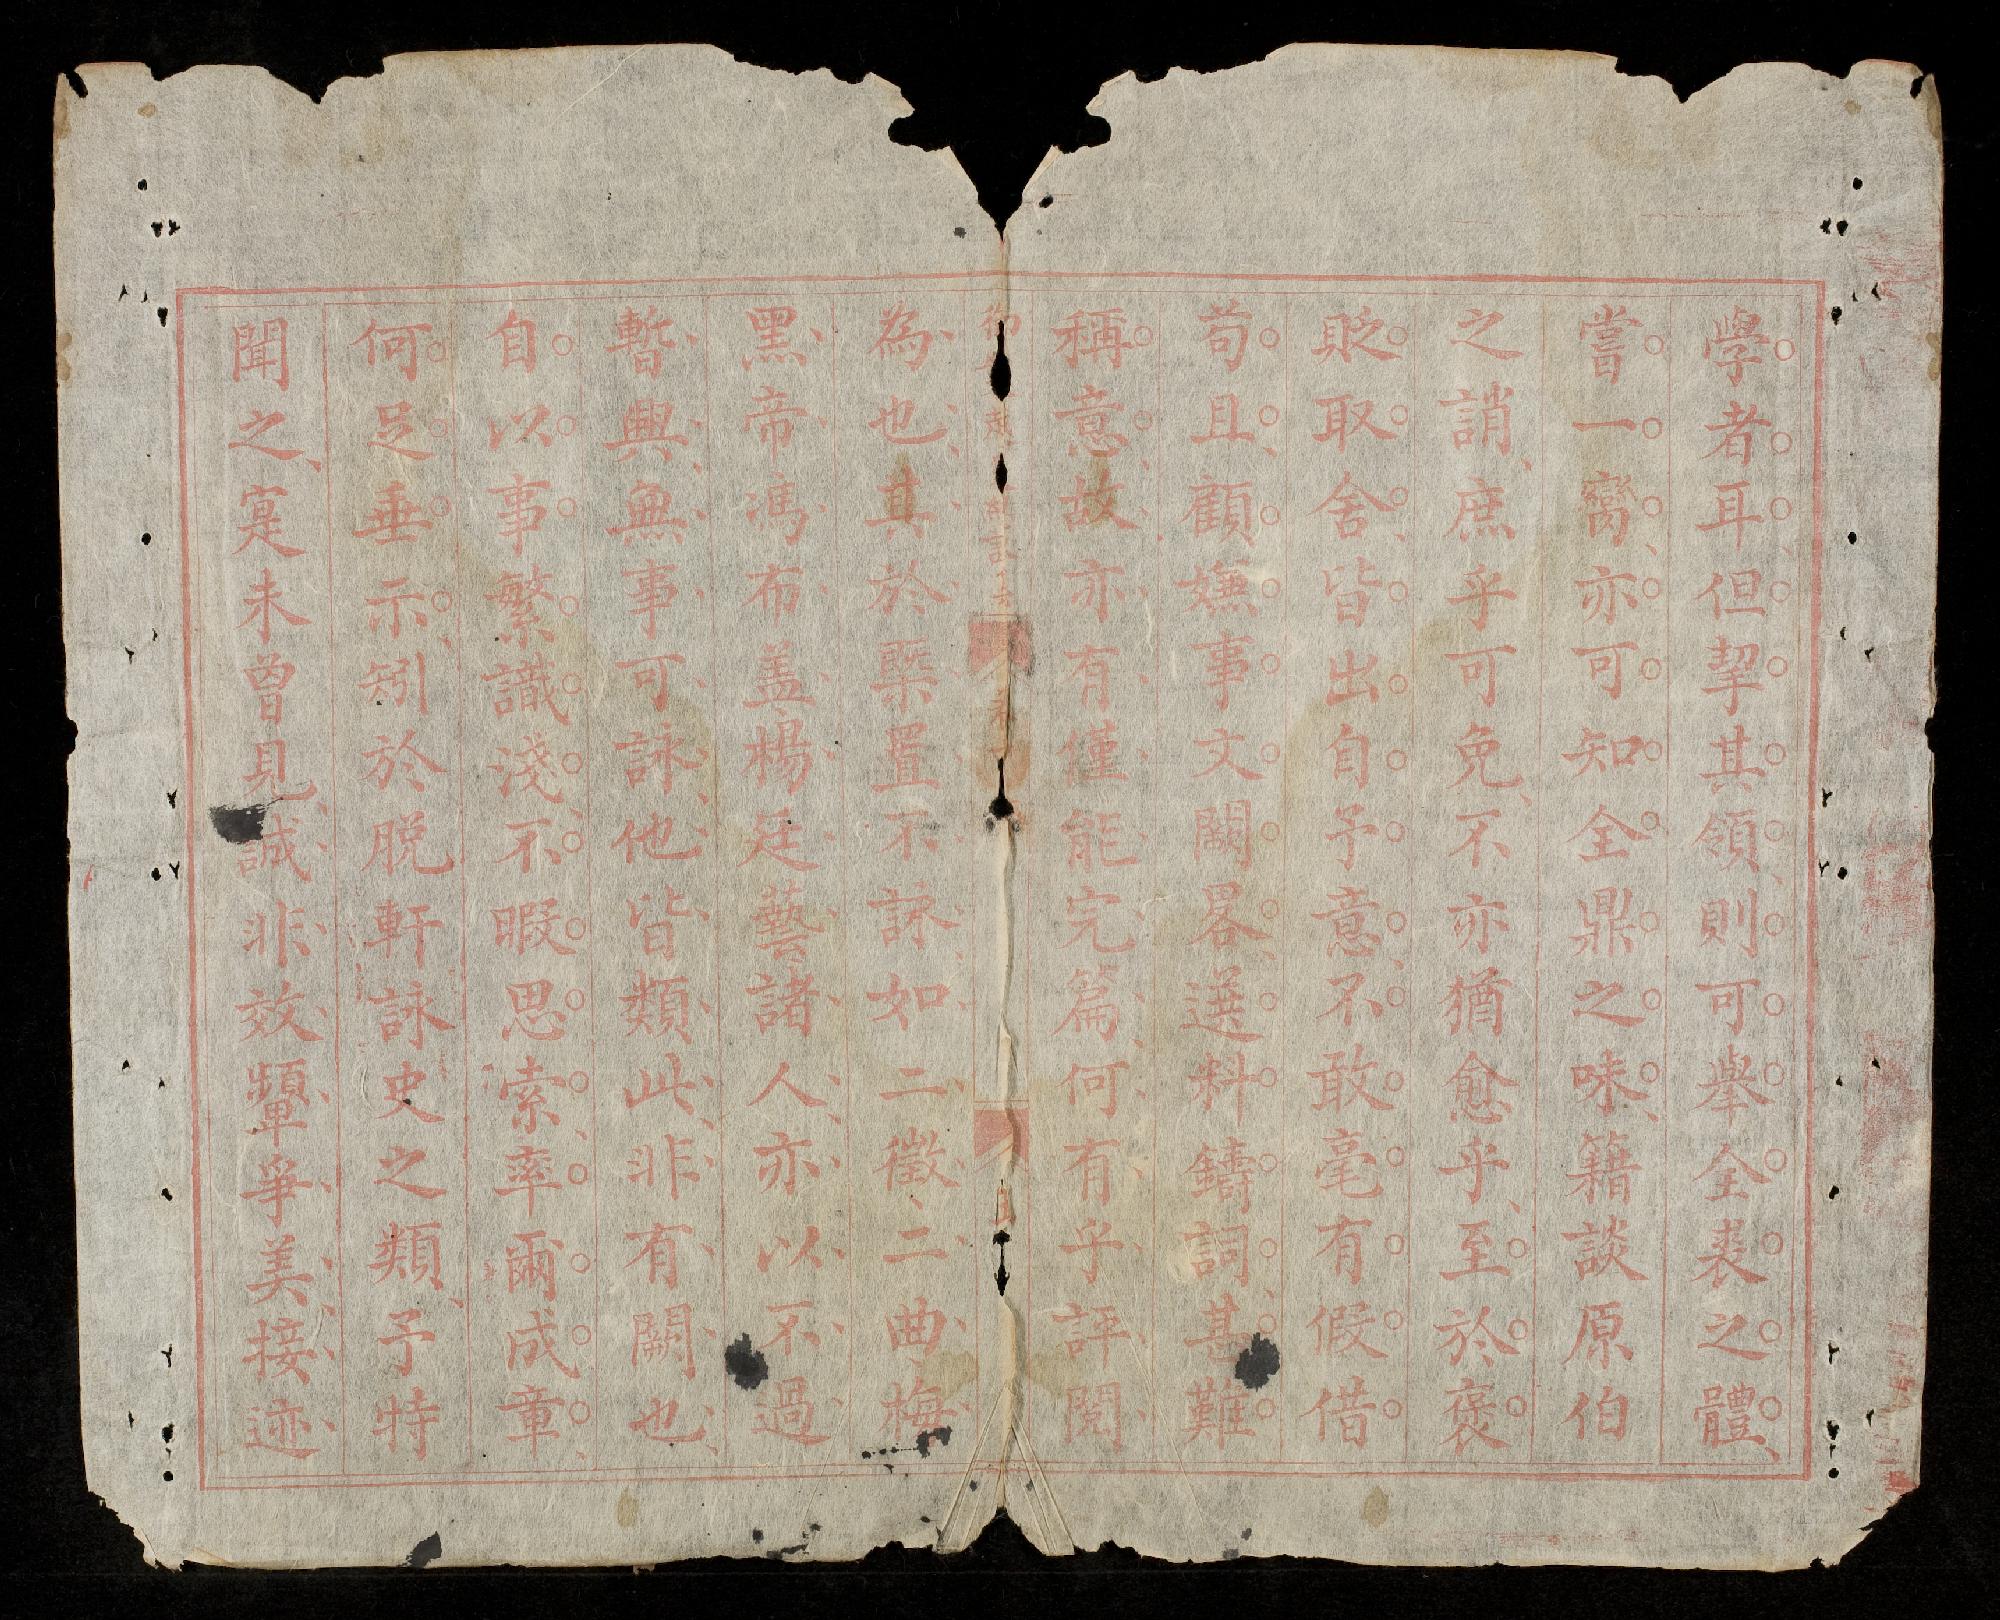 學者耳但挈其領則可舉全裘之體
嘗一臠亦可知全鼎之味籍談原伯
之誚庶乎可免不亦猶愈乎至於褒
貶取舍皆出自予意不敢毫有假借
苟且顧嫵事文闕畧選料鑄詞甚難
稱意故亦有僅能完篇何有乎評閱
御
為也其於槩置不詠如二徵二曲梅
黑帝馮布蓋楊廷藝諸人亦以不過
暫興無事可詠他皆類此非有闕也
自以事繁識淺不暇思索率爾成章
何足垂示矧於脱軒詠史之類予特
聞之寔未曾見誠非效顰爭美接迹